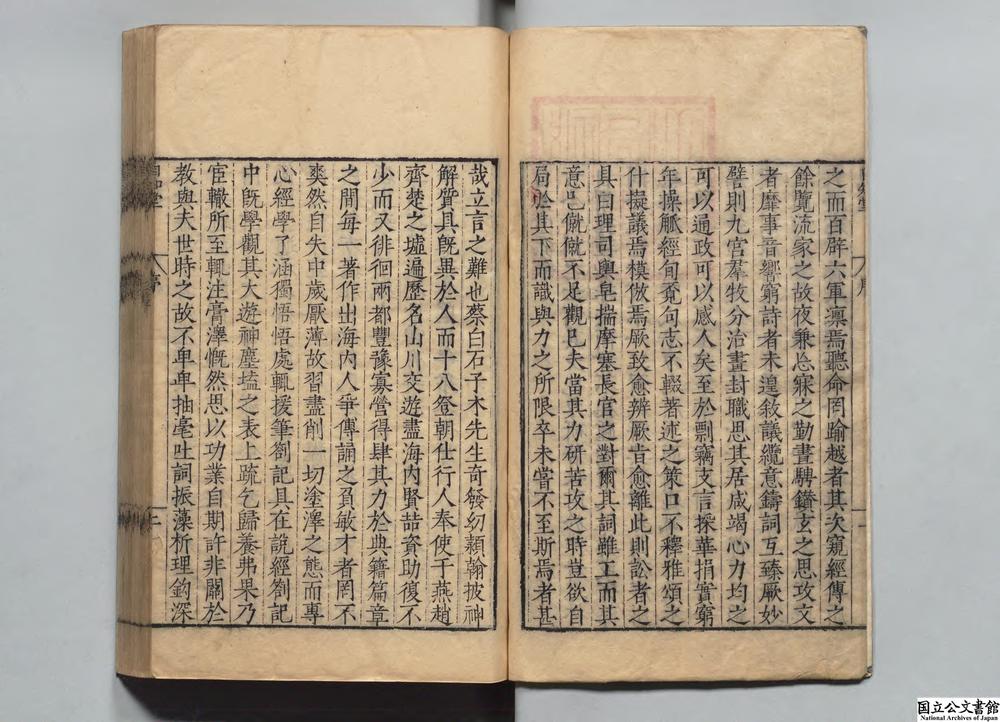 之而百辟六軍凛焉聽命罔踰越者其次窺經傳之
餘覽流家之故夜兼忘寐之勤書騁鑽玄之思攻文
者靡事音響窮詩者未遑敘議纜意鑄詞互臻厥妙
譬則九宫羣牧分治畫封職思其居咸竭心力均之
可以通政可以感人矣至於剽竊支言探華捐實窮
年操觚經旬覔句志不輟著述之策口不釋雅頌之
什擬議焉模倣焉厥致愈辨厥肯愈離此則訟者之
具曰理司與皂揣摩塞長官之對爾其詞雖工而其
意已僦僦不足觀已夫當其力研苦攻之時豈欲自
局於其下而識與力之所限卒未嘗不至斯焉者甚
哉立言之難也蔡曰石子木先生奇發幼穎翰披神
解質具既異於人而十八登朝仕行人奉使于燕趙
齊楚之墟遍歷名山川交遊盡海內賢喆資助復不
少而又徘徊兩都豐豫寡營得肆其力於典籍篇章
之間每一著作出海内人爭傳誦之負敏才者罔不
爽然自失中歲厭薄故習盡削一切塗澤之態而專
心經學了涵獨悟悟處輒援筆劄記具在說經劄記
中既學觀其大遊神塵壒之表上疏乞歸養弗果乃
宦轍所至輒注膏澤慨然思以功業自期許非關於
教與夫世時之故不卑卑抽毫吐詞振藻析理鈎深
序
二
国立公文書館
National Archives of Japan